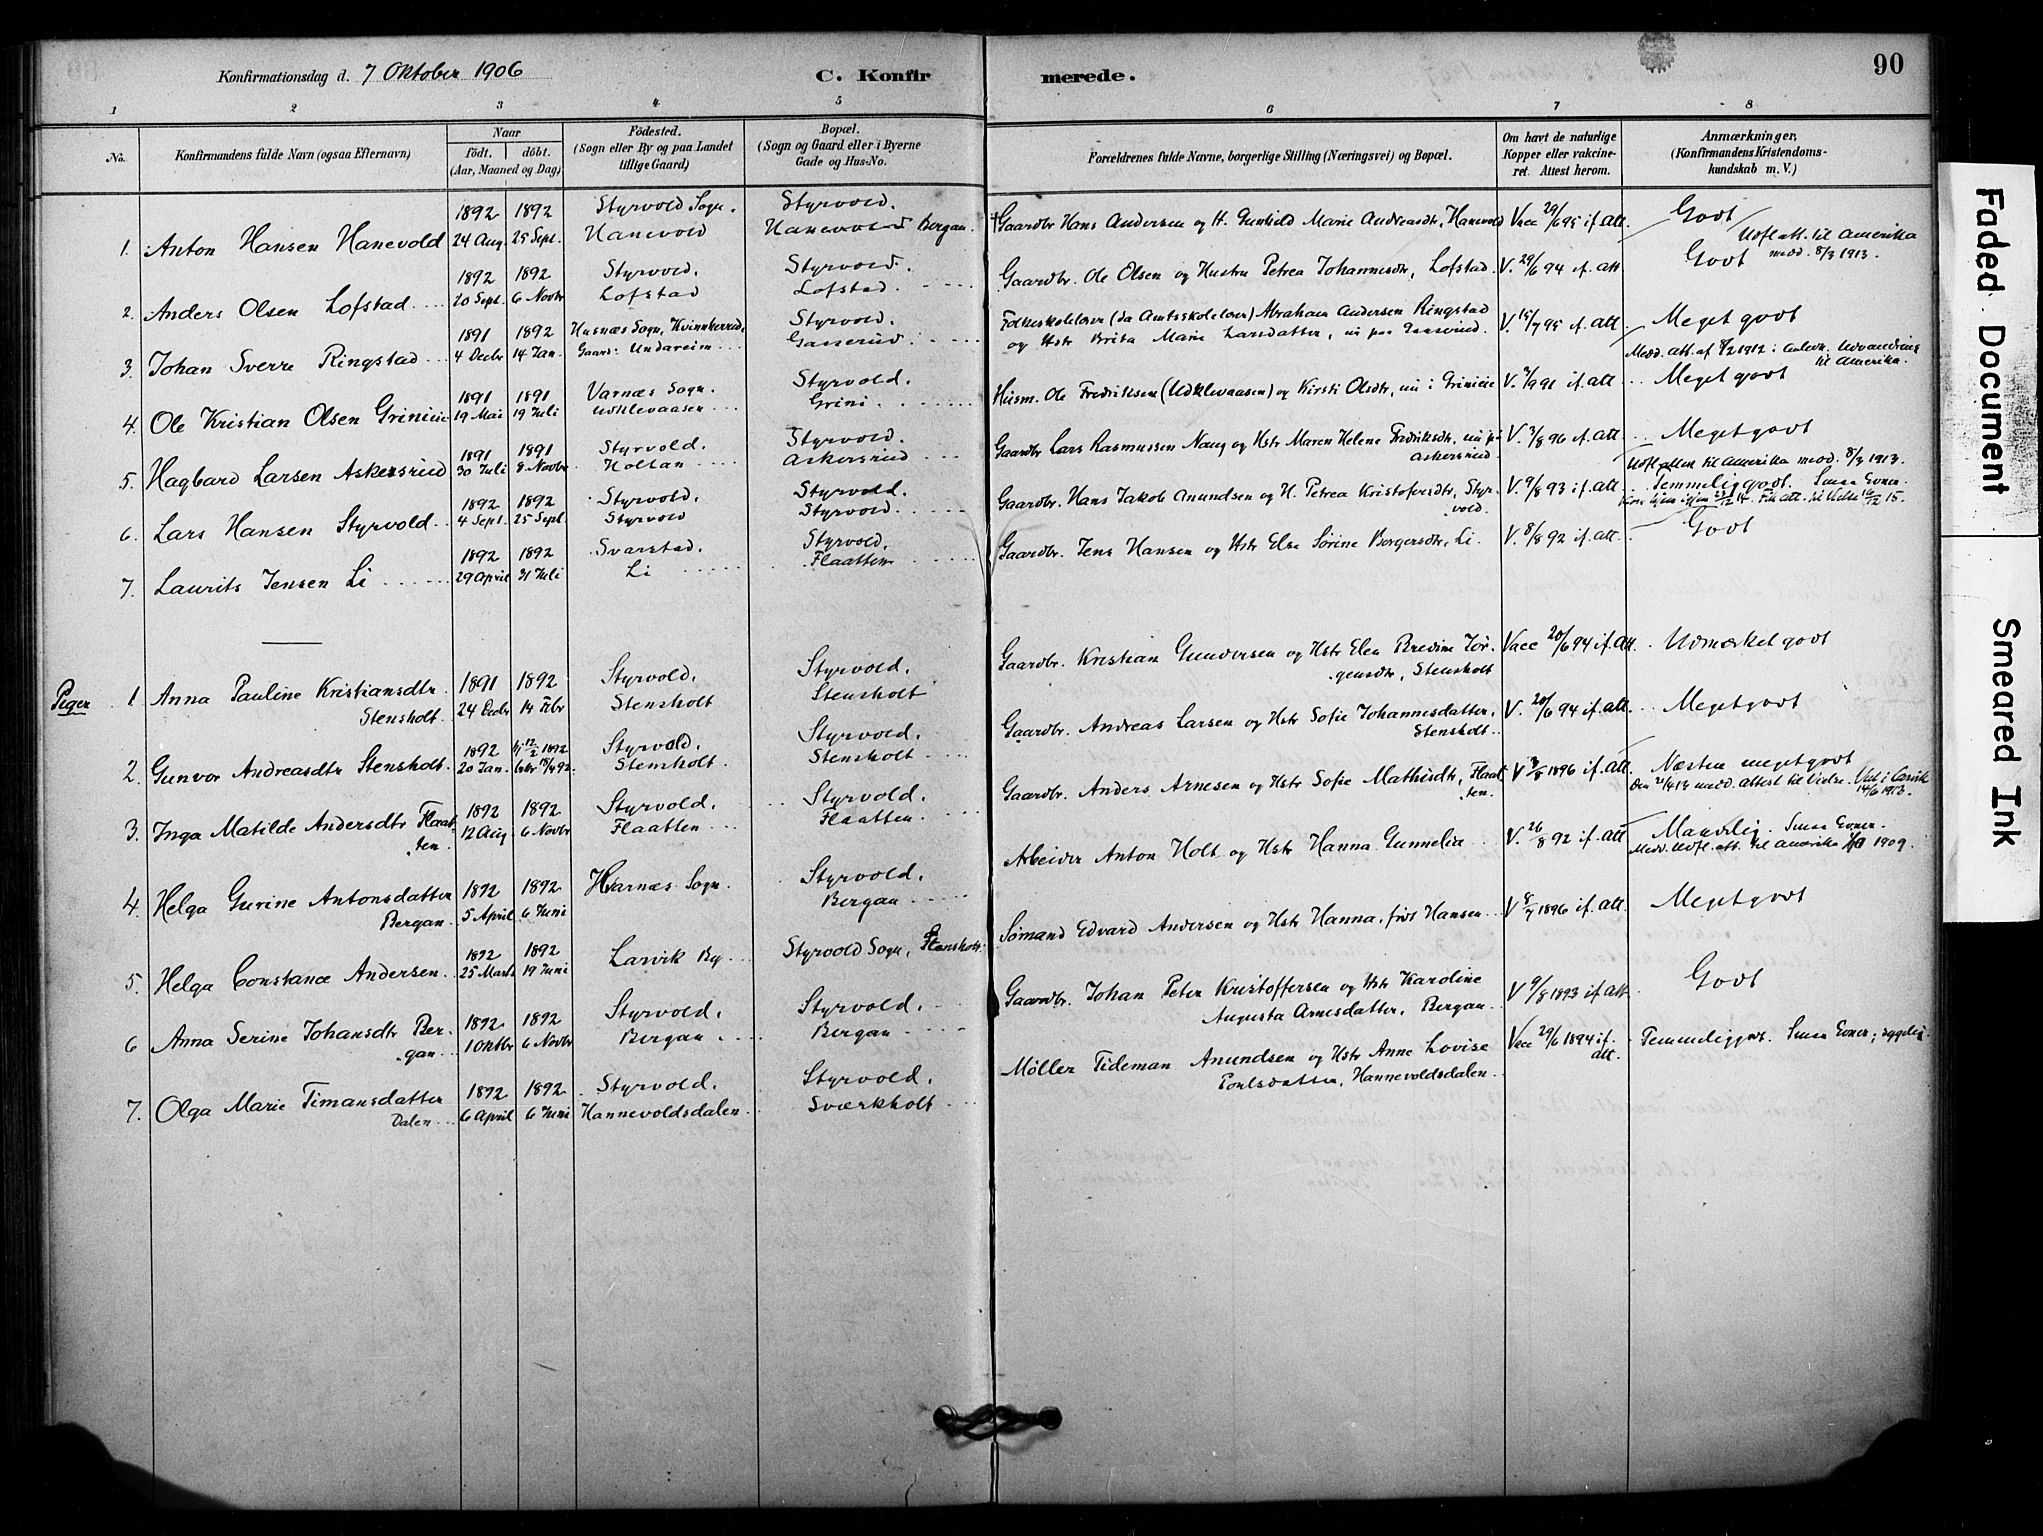 Konfirmationsdag d. 7 Oktober 1906
C. Konfirmerede.
90
1 2 3 4 5 6 7 8
No.
Konfirmandens fulde Navn (ogsaa Efternavn)
Naar
födt. döbt.
(Aar, Maaned og Dag)
Födested.
(Sogn eller By og paa Landet
tillige Gaard)
Bopæl.
(Sogn og Gaard eller i Byerne
Gade og Hus-No.
Forældrenes fulde Navne, borgerlige Stilling (Næringsvei) og Bopæl.
Om havt de naturlige
Kopper eller vakcine-
ret. Attest herom.
Anmærkninger,
(Konfirmandens Kristendoms-
kundskab m. V.)
1892 1892 Styrvold Sogn. Styrvold.
1. Anton Hansen Hanevold 24 Aug. 25 Sept. Hanevold Hanevold Bergan.
Gaardbr Hans Andersen og H. Gunhild Marie Andreasdtr, Hanevold Vacc 29/6 95 if. att. Godt
Udfl. att. til Amerika
medd. 8/3 1913.
1892 1892 Styrvold. Styrvold.
2. Anders Olsen Lofstad 20 Sept. 6 Novbr Lofstad Lofstad.
Gaardbr. Ole Olsen og Hustru Petrea Johannesdtr, Lofstad. V. 29/6 94 if. att. Godt
1891 1892 Husnæs Sogn, Kvinnherred, Styrvold.
3. Johan Sverre Ringstad 4 Decbr 14 Jan. Gaard: Undareim Gasserud.
Folkeskolelærer (da Amtsskolelærer) Abraham Andersen Ringstad
og Hstr Brita Marie Larsdatter, nu paa Gasserud. V. 15/7 95 if. att. Meget godt
Medd. att. af 1912 i Anledn. Udvandring
til Amerika.
1891 1891 Varnæs Sogn. Styrvold.
4. Ole Kristian Olsen Griniie 19 Mai 19 Juli Udklevaasen Grini.
Husm. Ole Fredriksen (Udklevaasen) og Kirsti Olsdtr, nu i Griniie V. 3/9 91 if. att. Meget godt
1891 1891 Styrvold. Styrvold.
5. Hagbard Larsen Askersrud 30 Juli 8 Novbr. Holtan Askersrud
Gaardbr Lars Rasmussen Naug og Hstr Maren Helene Fredriksdtr, nu på
Askersrud V. 3/8 96 if. att. Meget godt
Udfl. atten til Amerika medd. 8/3 1913.
1892 1892 Styrvold. Styrvold.
6. Lars Hansen Styrvold. 4 Sept. 25 Sept. Styrvold Styrvold.
Gaardbr. Hans Jakob Anundsen og H. Petrea Kristofersdtr, Styr-
vold. V. 9/8 93 if. att. Temmelig godt. Smaa Evner.
1892 1892 Svarstad. Styrvold.
7. Laurits Jensen Li 29 April 31 Juli Li Flaatten
Gaardbr. Jens Hansen og Hstr Else Sørine Borgersdtr, Li. V. 8/8 92 if. att. Godt
Piger
1 Anna Pauline Kristiansdtr 1891 1892 Styrvold. Styrvold.
Stensholt. 24 Decbr 14 Febr Stensholt Stensholt
Gaardbr. Kristian Gundersen og Hstr Elen Bredine Jör-
gensdtr, Stensholt Vacc 20/6 94 if. att. Udmærket godt
1892 hj 12/2 1892 Styrvold. Styrvold.
2. Gunvor Andreasdtr Stensholt. 20 Jan. bekr 18/4 92. Stensholt. Stensholt.
Gaardbr. Andreas Larsen og Hstr Sofie Johannesdatter,
Stensholt. V. 20/6 94 if. att. Meget godt
1892 1892 Styrvold. Styrvold.
3. Inga Matilde Andersdtr Flaat- 12 Aug 6 Novbr Flaatten Flaatten.
ten.
Gaardbr. Anders Arnesen og Hstr Sofie Mathisdtr, Flaat-
ten. V 3/8 1896 if. att. Næsten meget godt
medd. attest til Vielse. Viet i Larvik
14/6 1913.
4. Helga Gurine Antonsdatter 1892 1892 Hvarnæs Sogn. Styrvold.
Bergan 5 April 6 Juni Bergan
Arbeider Anton Holt og Hstr Hanna Gunnelia V. 26/8 92 if. att Maadelig. Smaa Evner.
Medd. Udfl. att. til Amerika 1909.
1892 1892
5. Helga Constance Andersen. 25 Marts 19 Juni Larvik By Styrvold Sogn, Stensholt.
Sømand Edvard Andersen og Hstr Hanna, født Hansen V 8/7 1896 if. att. Meget godt
1892 1892 Styrvold. Styrvold.
6 Anna Serine Johansdtr Ber- 1 Oktbr 6 Novbr Bergan. Bergan
gan
Gaardbr. Johan Peter Kristoffersen og Hstr Karoline
Augusta Arnesdatter, Bergan V 9/8 1893 if. att. Godt
1892 1892 Styrvold. Styrvold.
7. Olga Marie Timansdatter 6 April 6 Juni Hannevoldsdalen. Sværkholt
Dalen
Möller Tideman Anundsen og Hstr Anne Lovise
Poulsdatter, Hannevoldsdalen. Vacc 29/6 1894 if.
att. Temmelig godt. Smaa Evner; sygelig.
Faded Document
Smeared Ink